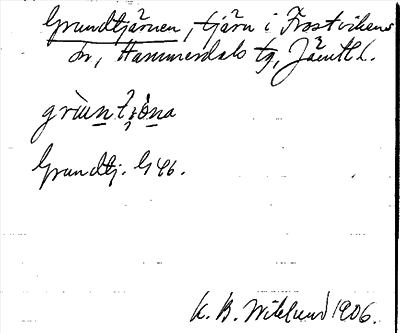 Grundtjärnen, tjärn i Frostvikens
sn, Hammerdals tg, Jämtl l.
grùntịòna
Grundtj. G46.
K. B. Wiklund 1906.